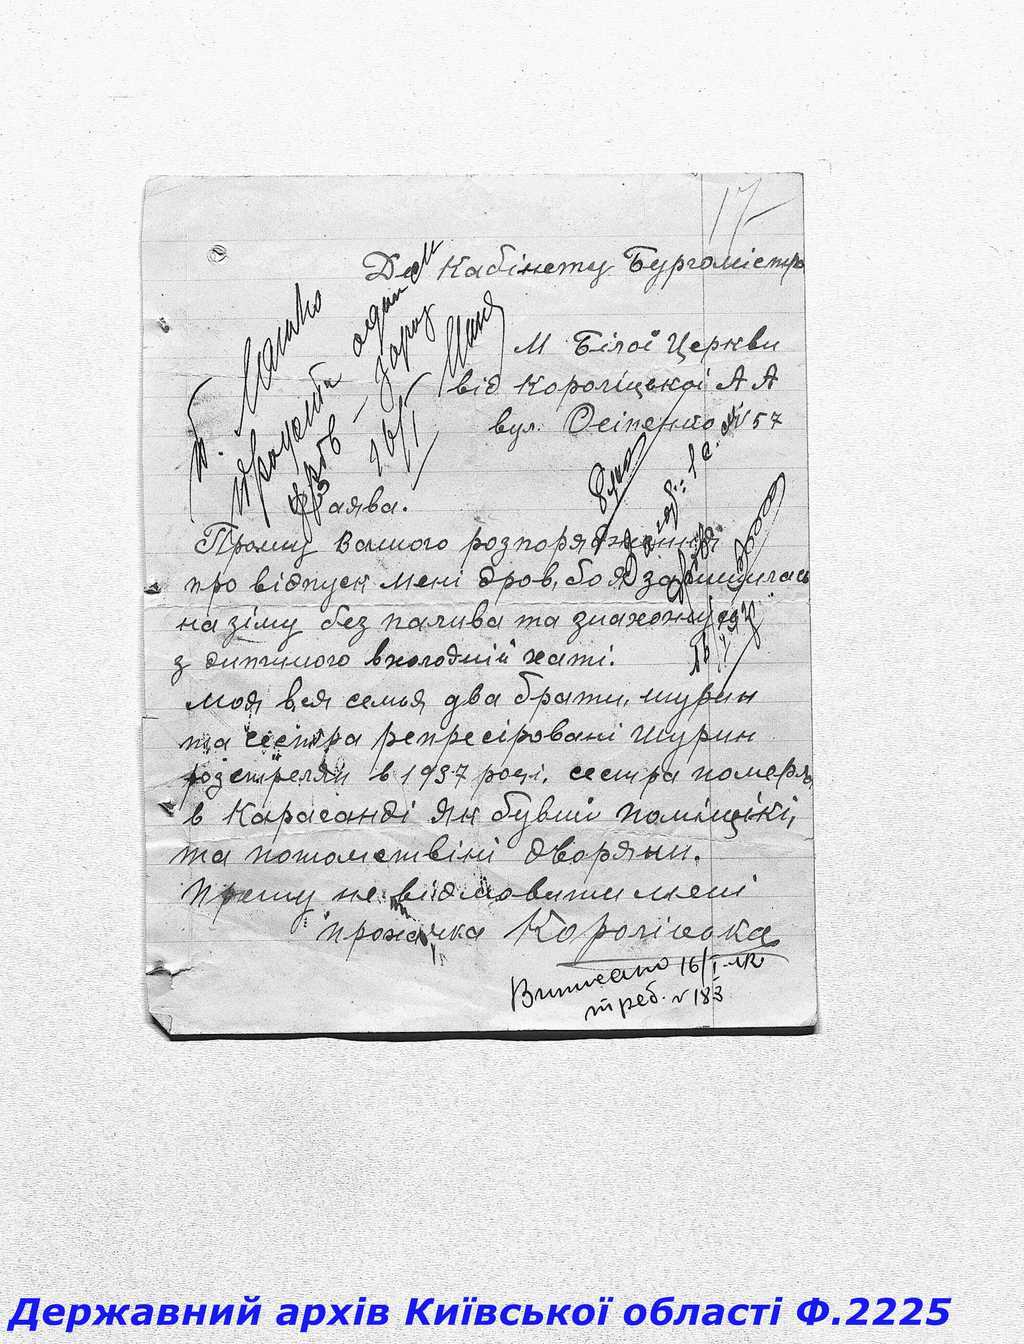 17
До Кабінету Бургомістра
М Білої Церкви
від Корогіцької А А
вул. Осіпенко № 57
Заява.
Прошу Вашого розпорядження
про відпуск мені дров, бо я залишилась
на зіму без палива та знахожусь
з дитиною вхолодній хаті.
Моя вся семья два брати, шурин
та сестра репресіровані шурин
розстрелян в 1937 році, сестра померла
в Караганді як бувші поміщікі,
та потомствіні дворяни.
Прошу не відмовити мені
прохачка Корогіцька
Виписано 16/I-42
треб. № 183
Державний архів Київської області Ф.2225